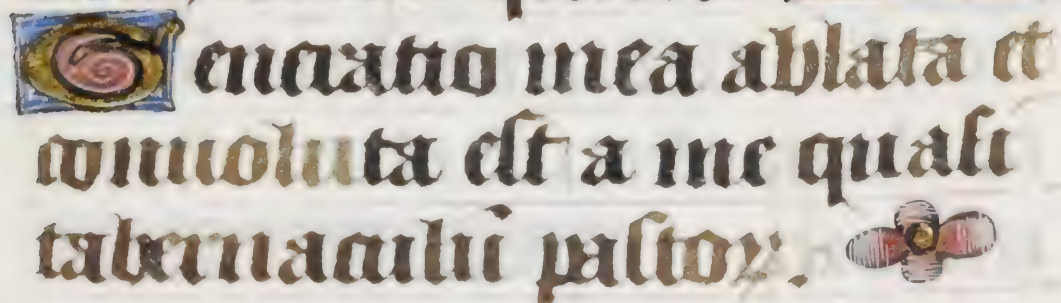 Generatio mea ablata et
conuoluta eſt a me quaſi
tabernaculū paſtoꝝ.